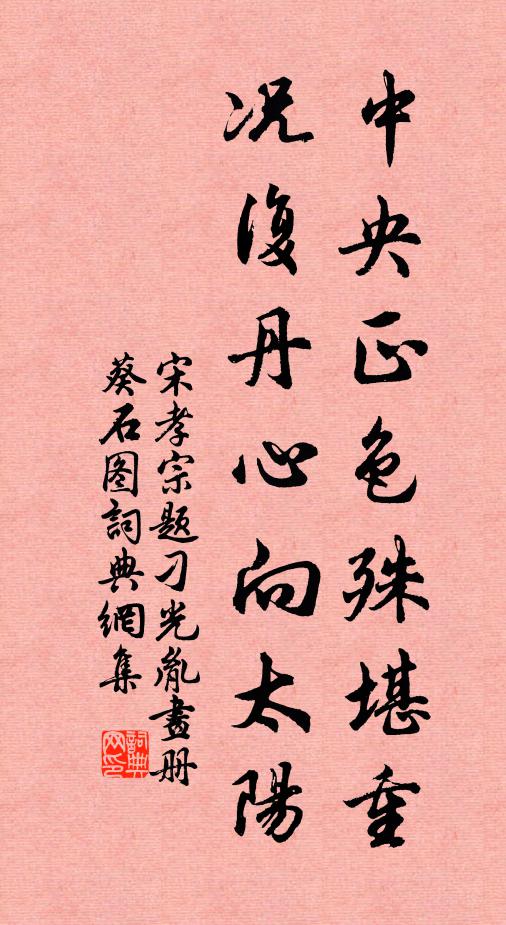 中央正色殊堪重
况復丹心向太陽
宋孝宗題刁光胤畫册
葵石图詞典網集
詞典网印